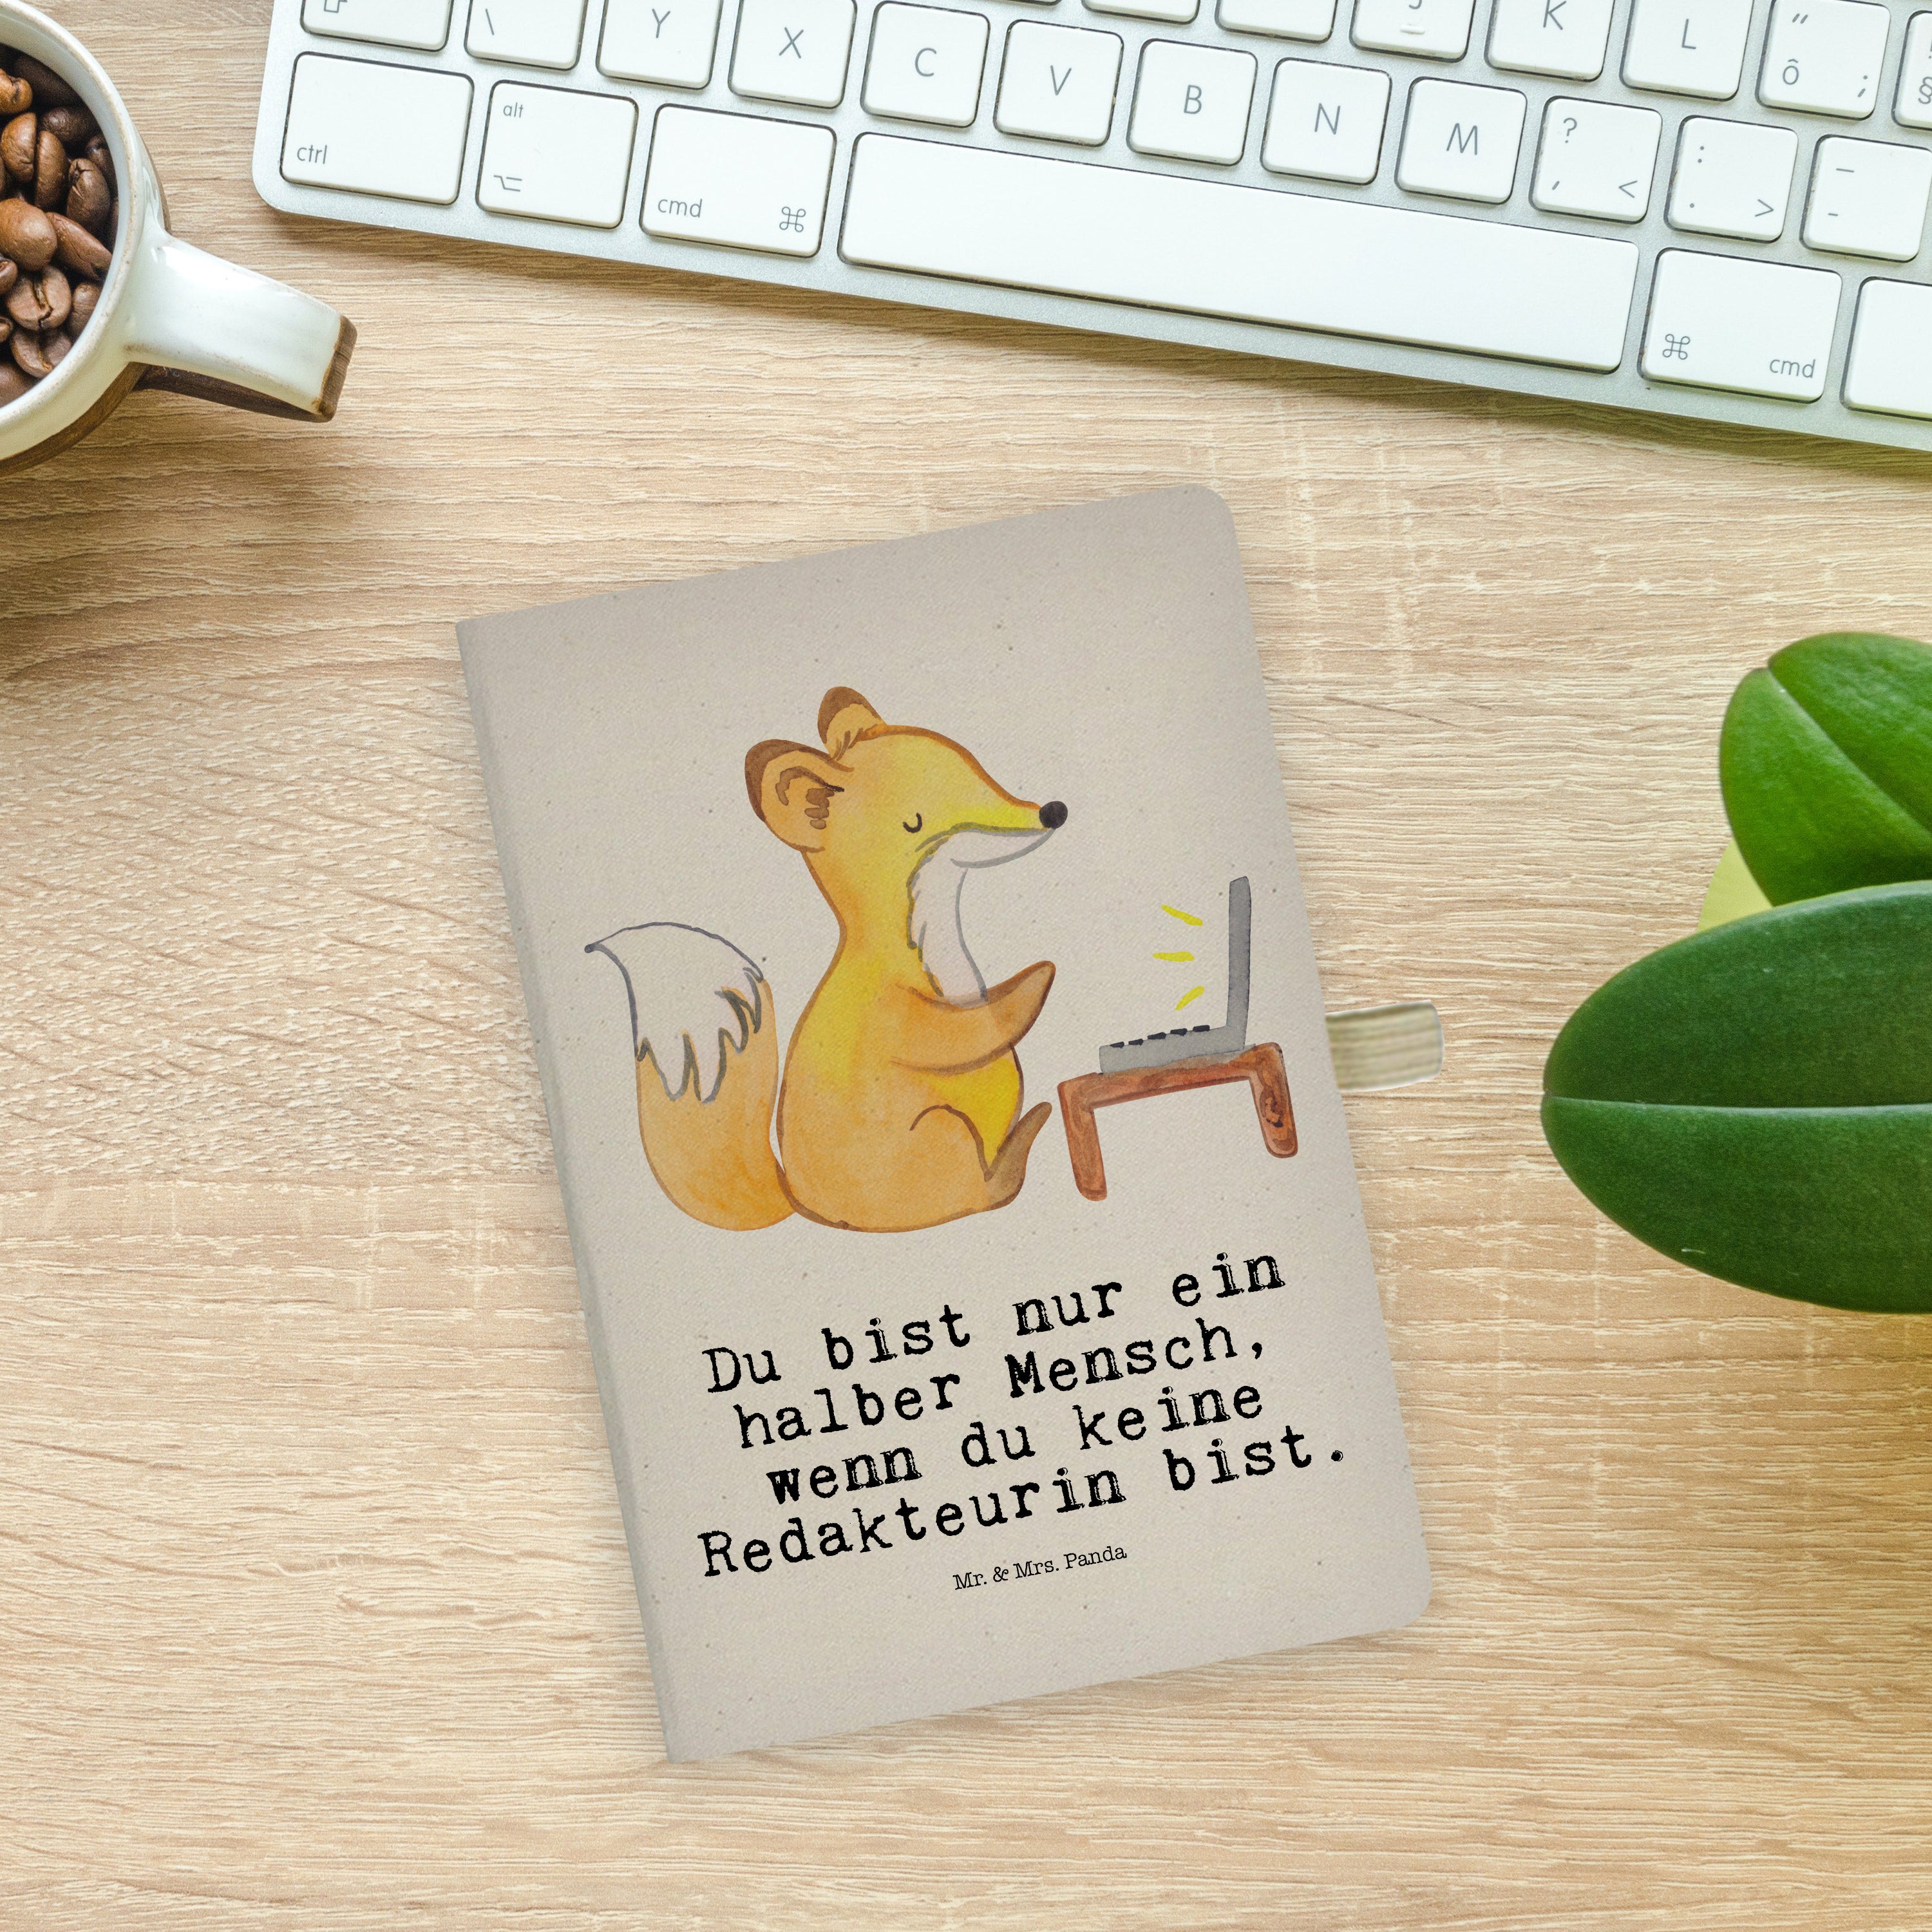 \ Y X C V B N M K L
" ô ;
ctrl
alt
cmd ⌘
? , <
: . >
_ -
⌘ cmd
Du bist nur ein
halber Mensch,
wenn du keine
Redakteurin bist.
Mr. & Mrs. Panda